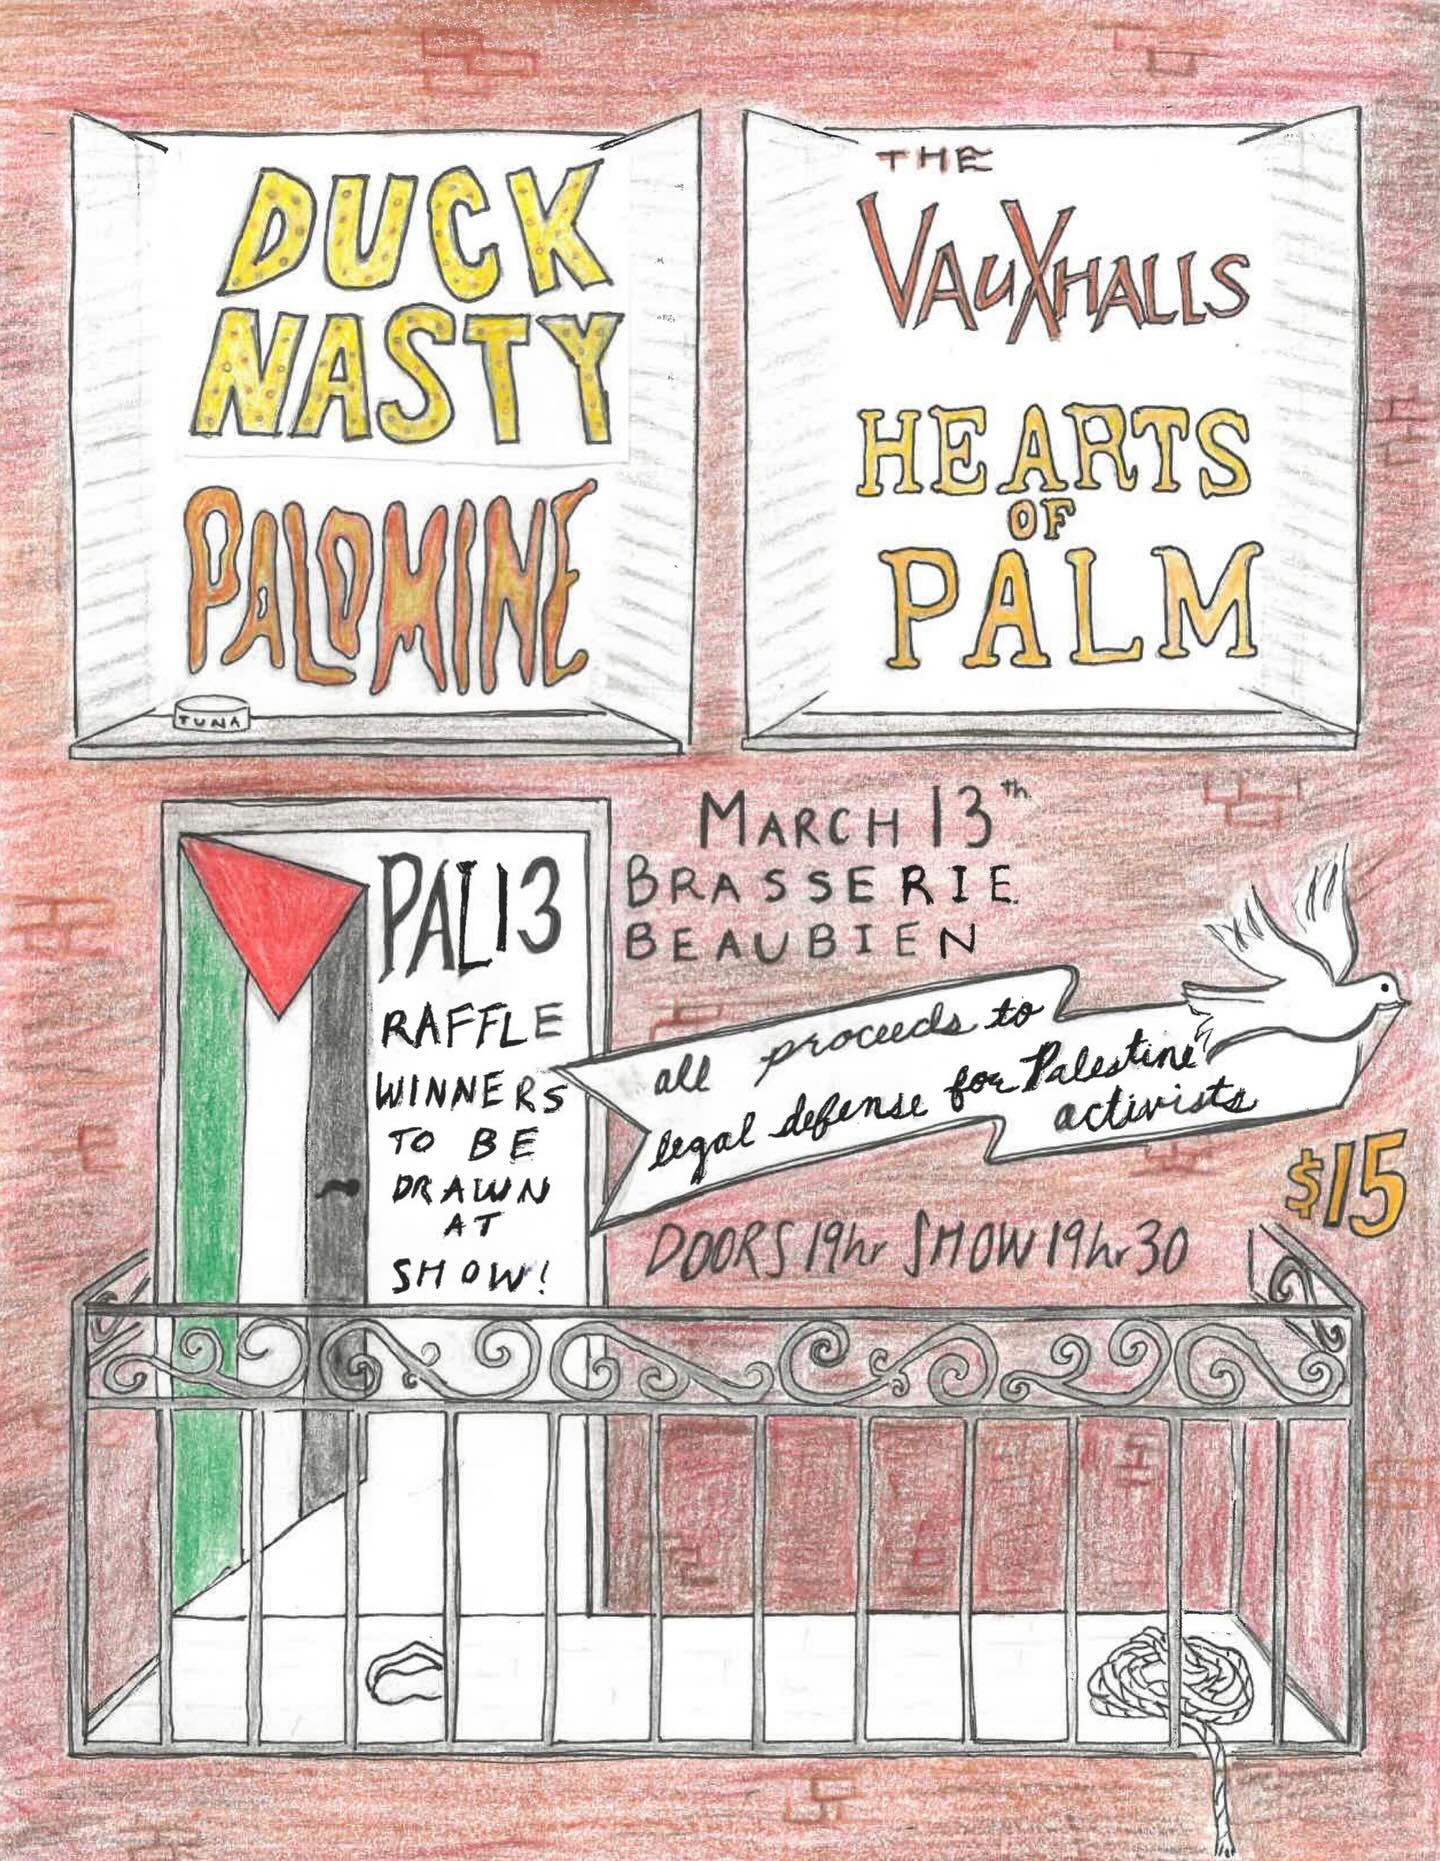 DUCK
NASTY
PALOMINE
TUNA
THE
VAUXHALLS
HEARTS
OF
PALM
MARCH 13th
BRASSERIE
BEAUBIEN
PAL13
RAFFLE
WINNERS
TO BE
DRAWN
AT
SHOW!
all proceeds to
legal defense for Palestine
activists
$15
DOORS 19hr SHOW 19hr30